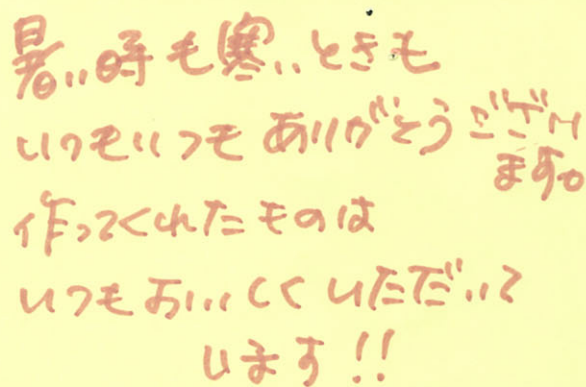 暑い時も寒いときも
いつもいつもありがとうござい
ます。
作ってくれたものは
いつもおいしくいただいて
います!!